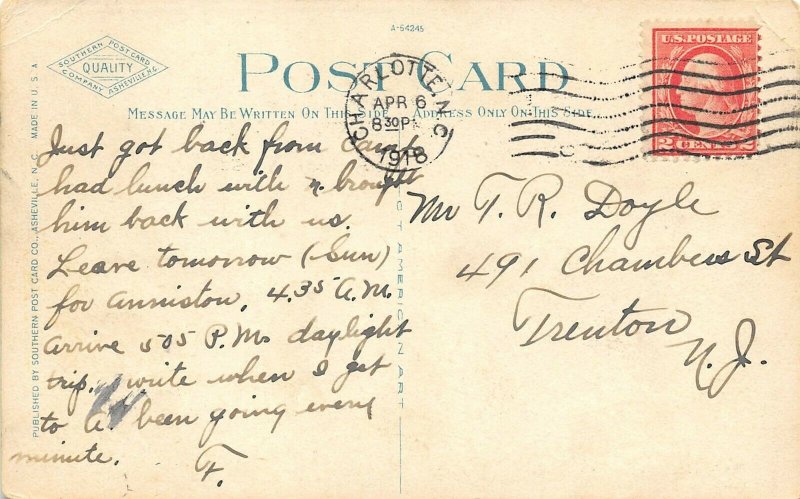 A-54245
SOUTHERN POST CARD
QUALITY
COMPANY ASHEVILLE, N.C.
POST CARD
MESSAGE MAY BE WRITTEN ON THIS SIDE
ADDRESS ONLY ON THIS SIDE
CHARLOTTE, N.C.
APR 6
8 30 P
1918
U.S. POSTAGE
2 CENTS 2
Just got back from camp
had lunch with & brought
him back with us.
Leave tomorrow (Sun)
for anniston, 4.35 A.M.
arrive 505 P.M. daylight
trip. write when I get
to A. been going every
minute.
F.
Mr T. R. Doyle
491 Chambers St
Trenton
N. J.
PUBLISHED BY SOUTHERN POST CARD CO., ASHEVILLE, N. C. MADE IN U. S. A
AMERICAN ART